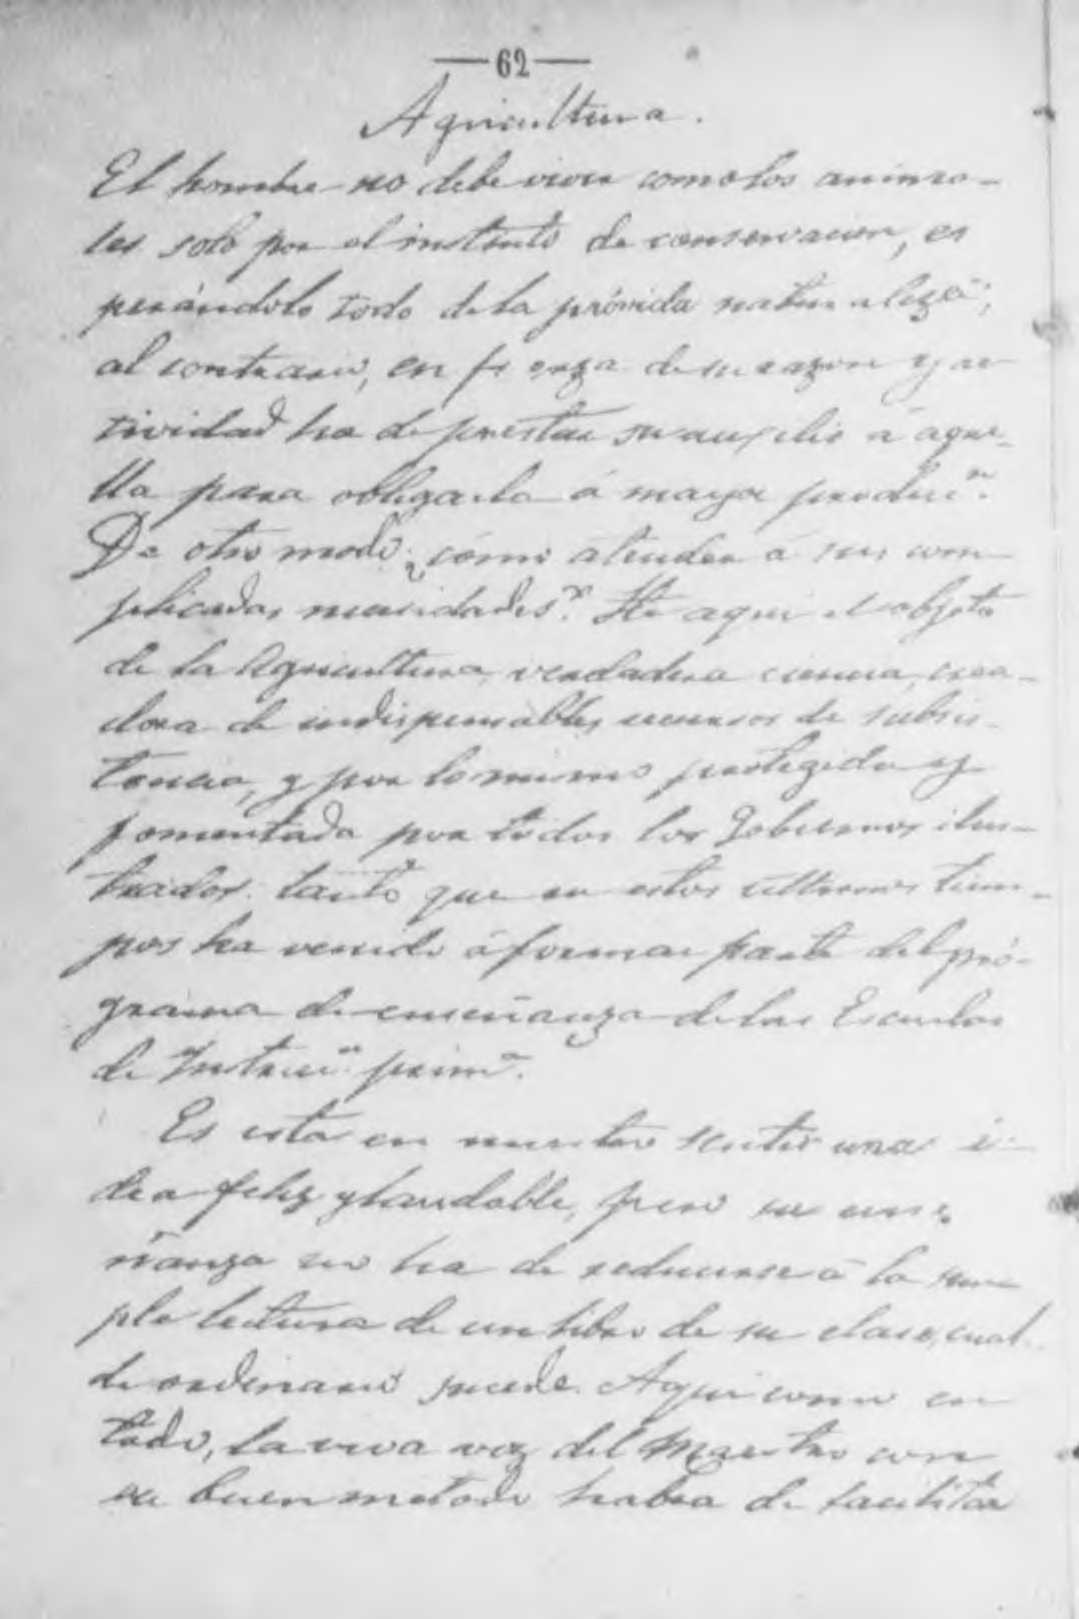 —62—
Agricultura.
El hombre no debe vivir como los anima-
les solo por el instinto de conservacion, es
perándolo todo de la próvida naturaleza;
al contrario, en fuerza de su razon y ac
tividad ha de prestar su auxilio á aque-
lla para obligarla á mayor producⁿ.
De otro modo ¿cómo atender á sus com
plicadas necesidades? He aqui el objeto
de la Agricultura verdadera ciencia, crea-
dora de indispensables recursos de subsis-
tencia, y por lo mismo protegida y
fomentada por todos los Gobiernos ilus-
trados. tanto que en estos ultimos tiem-
pos ha venido á formar parte del pro-
grama de enseñanza de las Escuelas
de Instrucⁿ primª.
Es esta en nuestro sentir una i-
dea feliz y laudable, pero su ense
ñanza no ha de reducirse á la sim
ple lectura de un libro de su clase, cual
de ordinario sucede. Aqui como en
todo, la viva voz del Maestro con
su buen metodo habra de facilitar